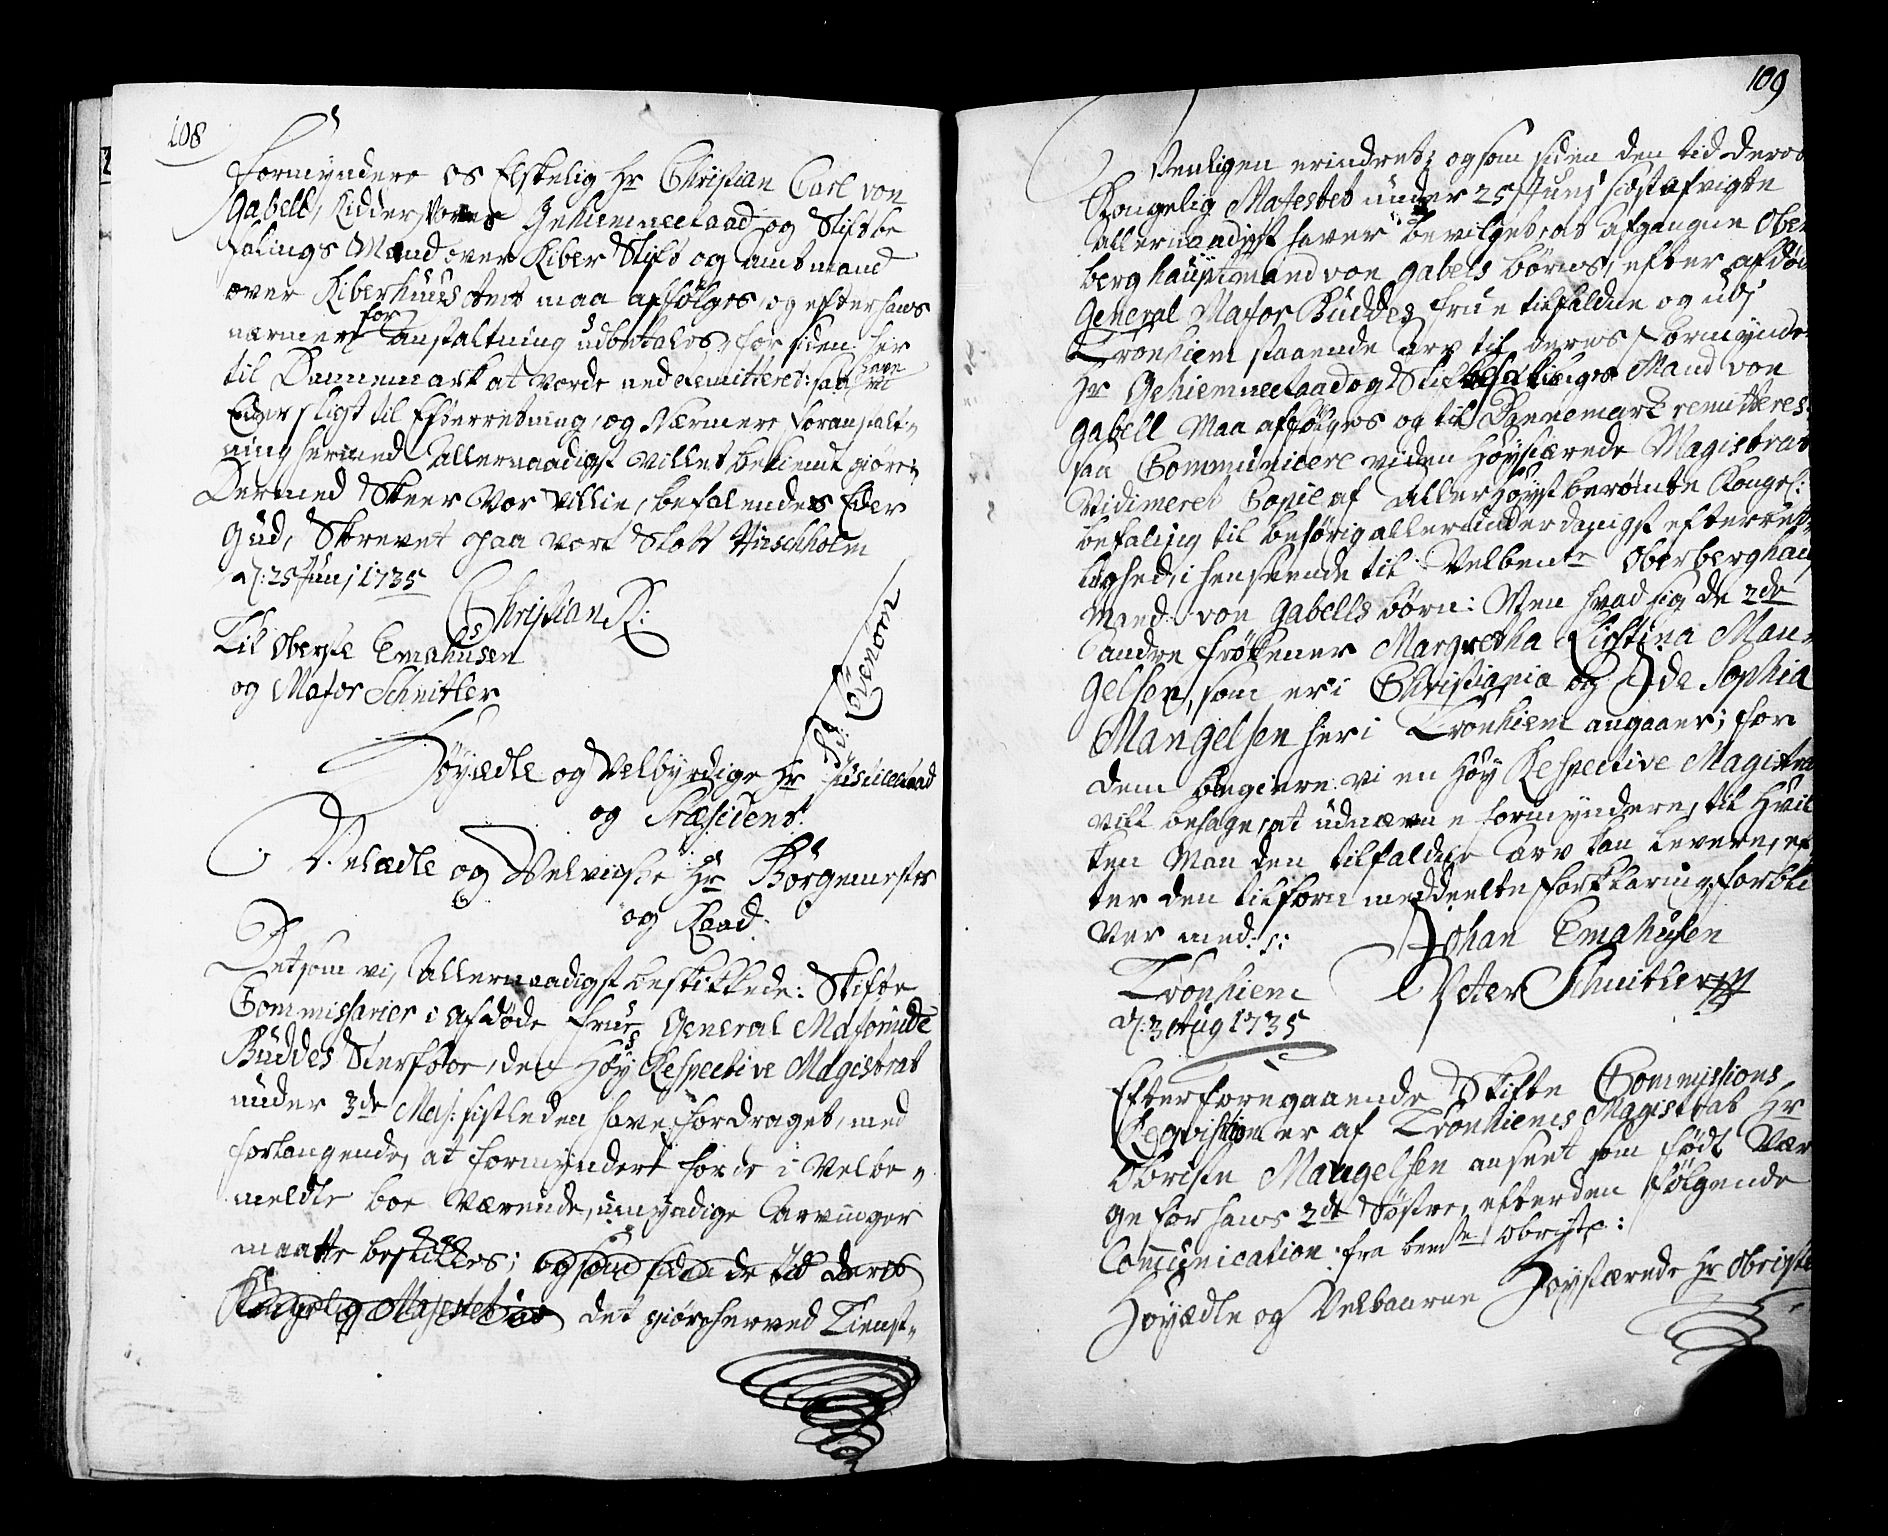 108
Formyndere os Elskelig Hr Christian Carl von
Gabell, Ridder, Vores Gehiemneeraad og Stiftbe
falings Mand over Riber Stift og Amtmand
over Riberhuus dent maa affølges, og efter hans
nærmere for anstaltning udbetales, for siden her
til Dannemark at vorde ned remitteret: saa have vi
Eder sligt til Efterretning, og Nærmere foranstalt-
ning hermed Allernaadigst villet bekiendt giøre;
Dermed Skeer Vor Villie, befalendes Eder
Gud, Skrevet paa vort Slott Hirschholm
d: 25 Junj 1735
Christian R:
Til Oberste Emahusen
og Major Schnitler
Høyædle og Velbyrdige Hr Justitzraad
og Præsident.
Velædle og Velviise Hr Borgemester
og Raad.
Det som vi, Allernaadigst beskikkede: Skifte
Commissarier i Afdøde Frue General Majorinde
Buddes Sterfboe, den Høy Respective Magistrat
under 3de Maj: sistleden have fordraget, med
forlangende, at formyndere for de i Velbe-
meldte boe Værende, umyndige Arvinger
maatte beskikkes; og som siden de tid Deris
Kongelig Majestet det giøres herved Tienst-
109
Venligen erindret; og som siden den tid Deres
Kongelig Majestet under 25 Junj sidst afvigte
allernaadigst haver bevilget, at Afgangne Ober
berghauptmand von Gabels børns, efter afdød
General Major Buddes Frue tilfaldne og udj
Tronhiem staaende Arv til deres Formynder
Hr Gehiemneeraad og Stiftbefalings Mand von
Gabell Maa afføлges og til Dannemark remitteres:
saa Communicere vi den Høystærede Magistrat
Vidimeret Copie af Allerhøystberømte Kongel:
befaling til behørig allerunderdanigst efterrett
lighed, i henseende til Velbente Oberberghau
mand von Gabells børn: Men hvad sig de 2de
andre Frøkener Margretha Kirstina Man-
gelsen, som er i Christiania og Ide Sophia
Mangelsen her i Tronhiem angaaer; for
dem begiere vi en Høy Respective Magistra
vill behage, at udnævne formyndere, til Hvil
ken Man den tilfaldne Arv kan levere, ef
ter den tilforn meddeelte forklaring, forbli
ver med: s:
Johan Emahusen
Tronhiem
Peter Schnitler
d: 3 Aug 1735
Efter foregaaende Skifte Commissions
Reqvisition er af Tronhiems Magistrat Hr
Obriste Mangelsen anseet som født Vær
ge for hans 2de Søstre, efter den følgende
Communication: fra bemte Obriste:
Høyædle og Velbaarne Høystærede Hr Obriste